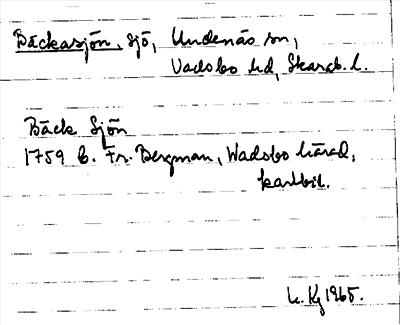 Bäckasjön, sjö, Undenäs sn,
Vadsbo hd, Skarab. l.
Bäck Sjön
1759 B. Fr. Bergman, Wadsbo härad,
kartbil.
L. Kg 1965.